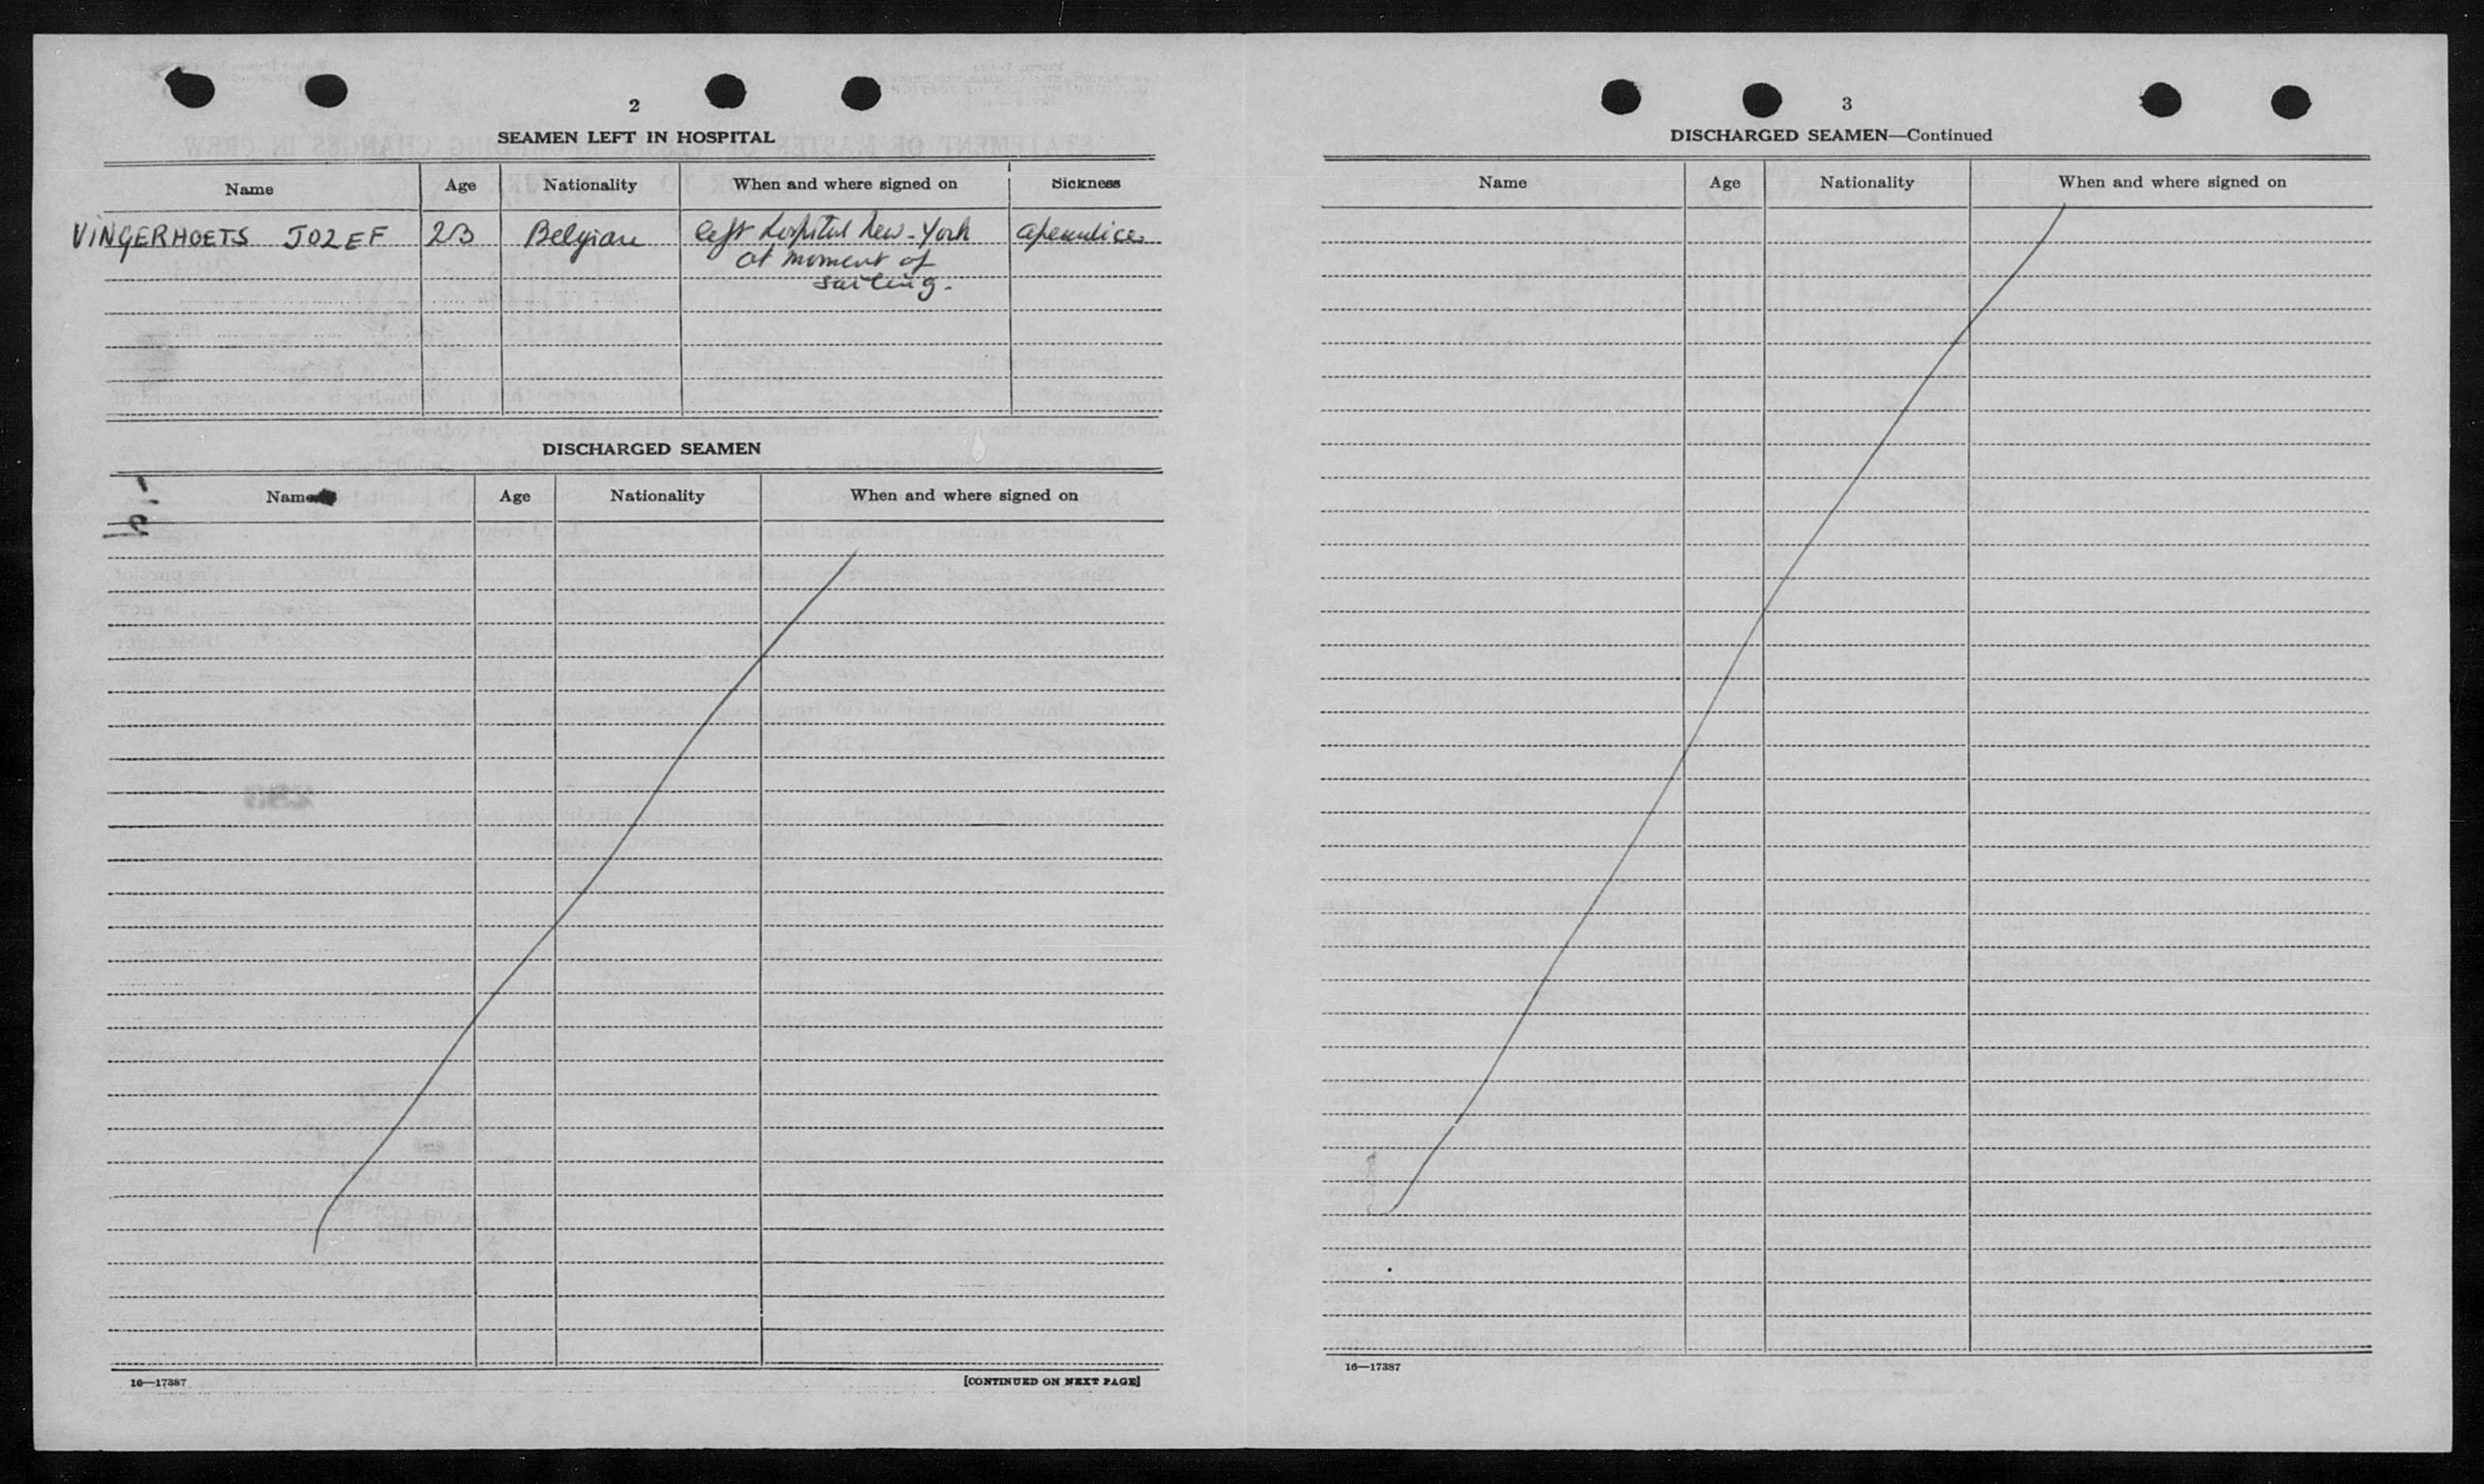 2
SEAMEN LEFT IN HOSPITAL
Name Age Nationality When and where signed on Sickness
VINGERHOETS JOZEF 23 Belgian left hospital New-York apendice
at moment of
sailing.
DISCHARGED SEAMEN
Name Age Nationality When and where signed on
16—17387 [CONTINUED ON NEXT PAGE]
3
DISCHARGED SEAMEN—Continued
Name Age Nationality When and where signed on
16—17387